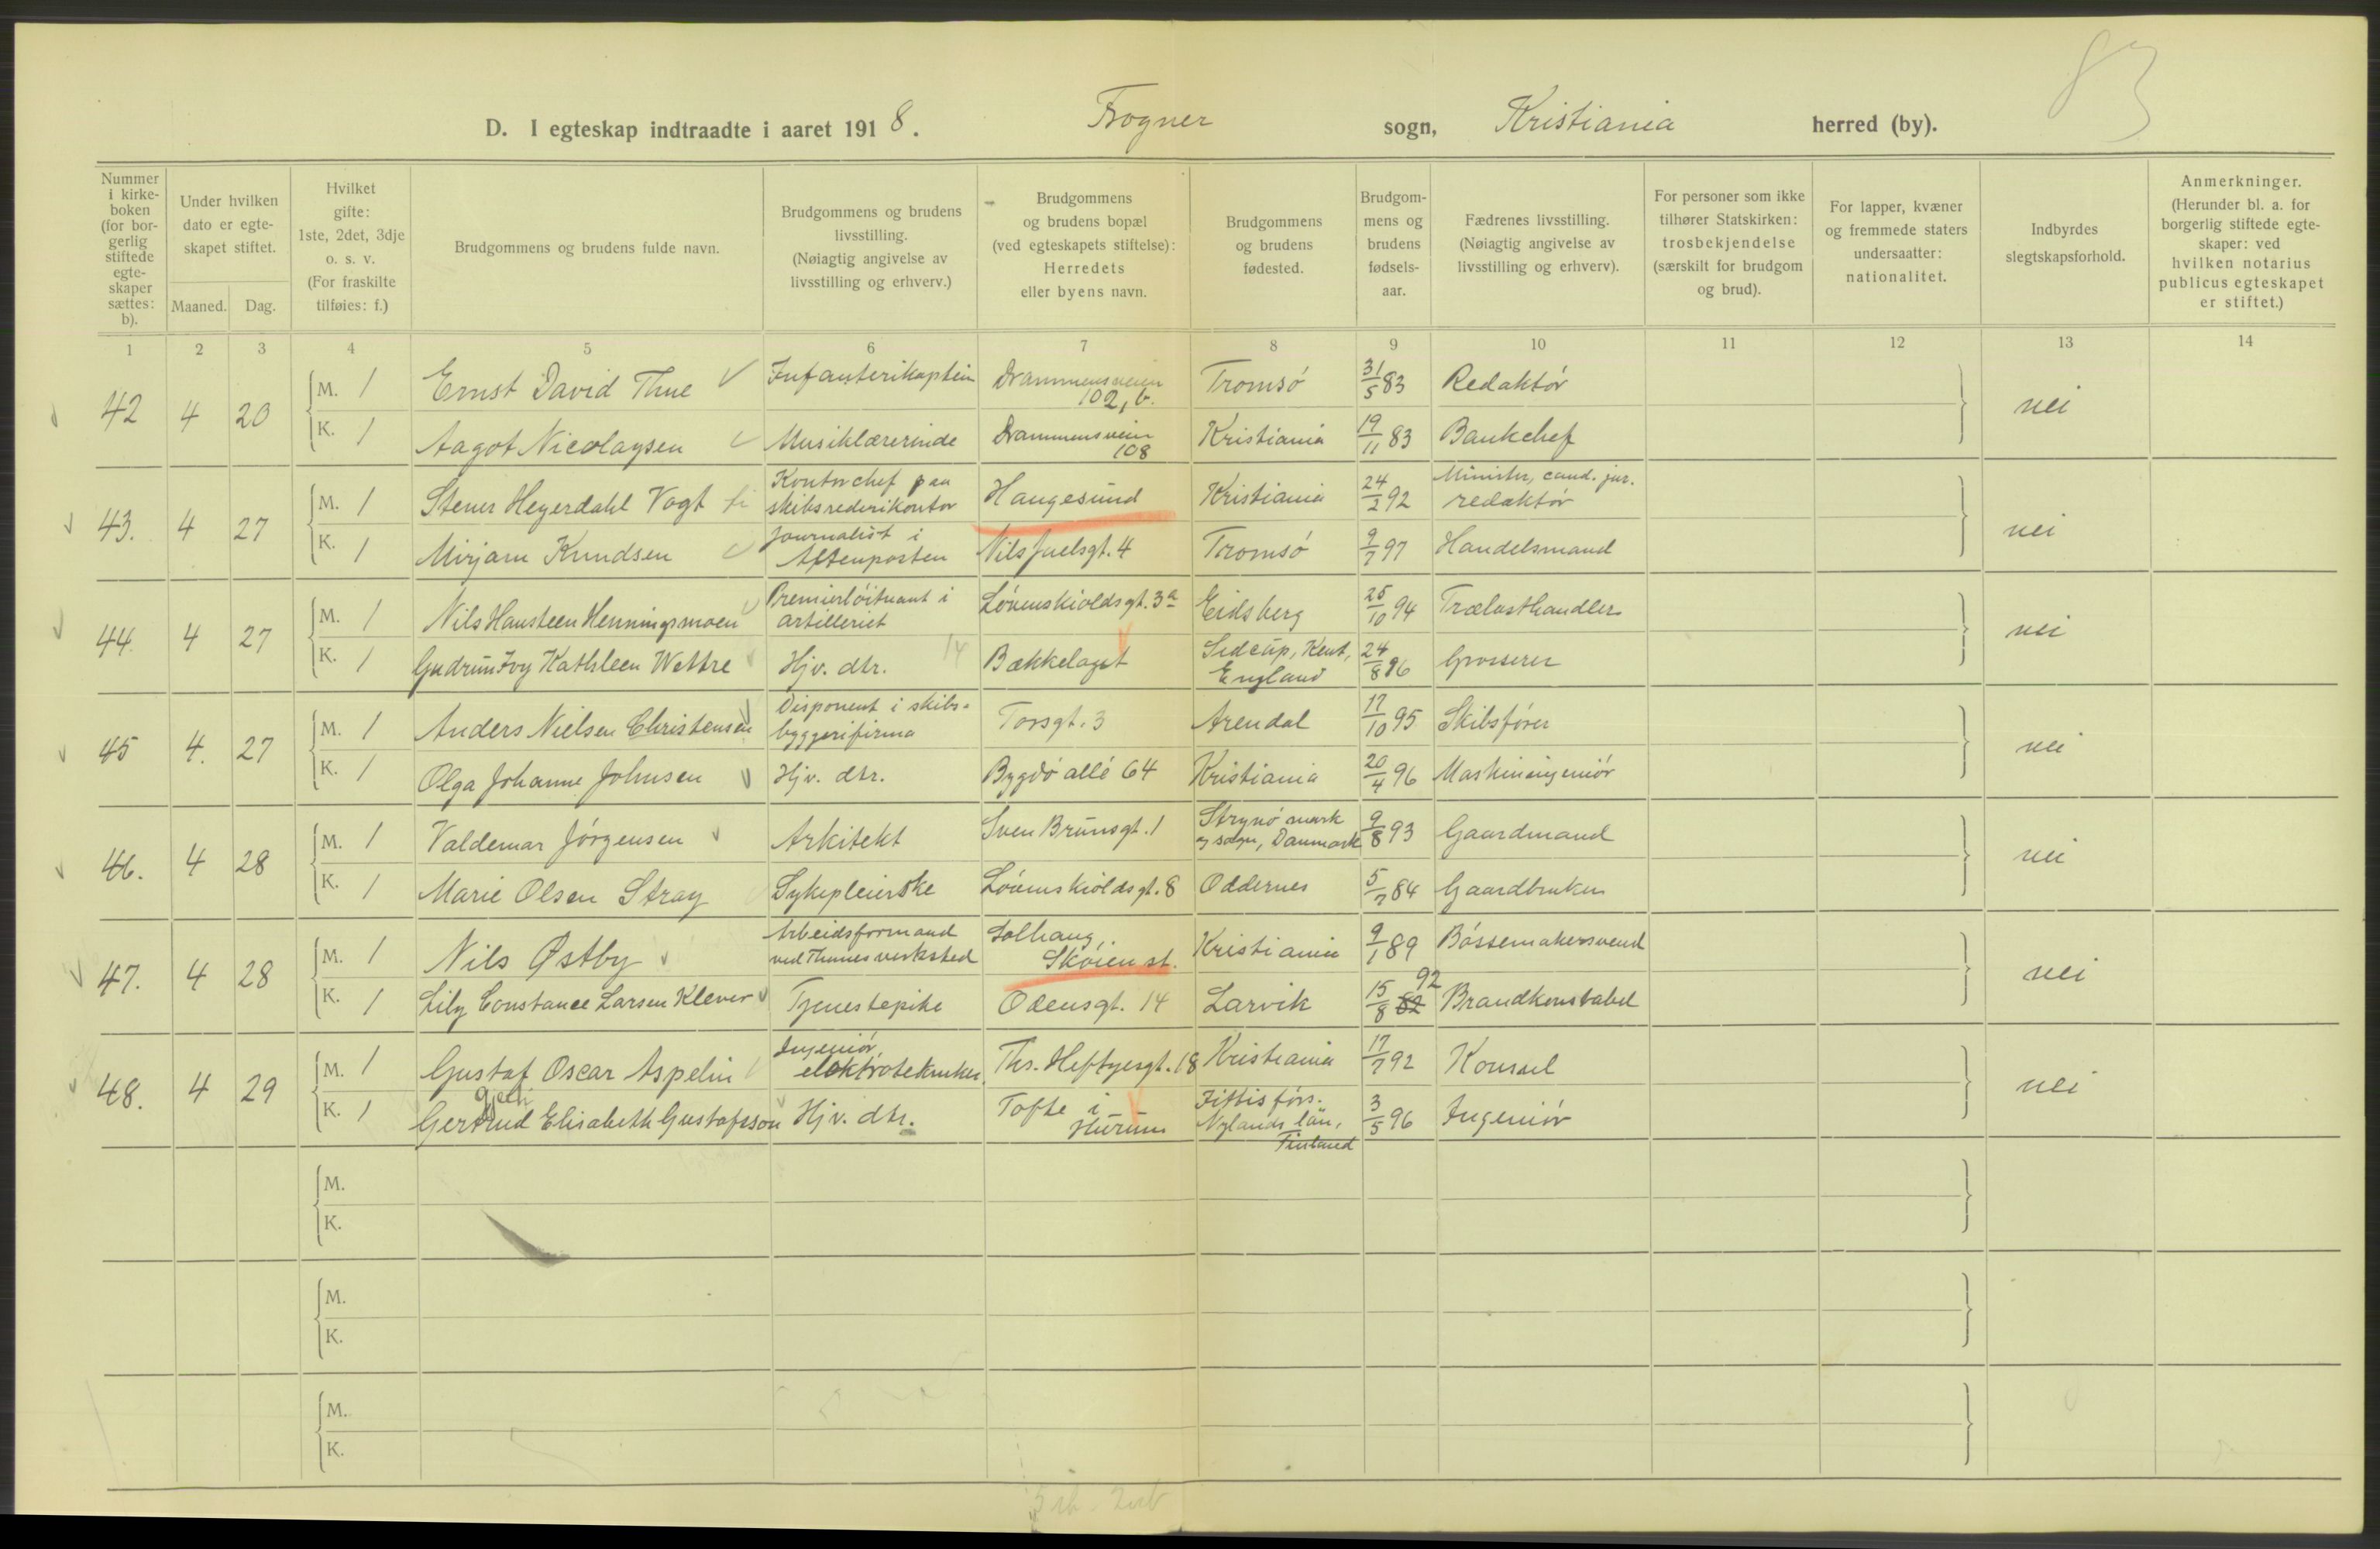 83
D. I egteskap indtraadte i aaret 1918. Frogner sogn, Kristiania herred (by).
Nummer i kirkeboken (for borgerlig stiftede egteskaper sættes: b).
Under hvilken dato er egteskapet stiftet.
Maaned. Dag.
Hvilket gifte: 1ste, 2det, 3dje o. s. v. (For fraskilte tilføies: f.)
Brudgommens og brudens fulde navn.
Brudgommens og brudens livsstilling. (Nøiagtig angivelse av livsstilling og erhverv.)
Brudgommens og brudens bopæl (ved egteskapets stiftelse): Herredets eller byens navn.
Brudgommens og brudens fødested.
Brudgommens og brudens fødselsaar.
Fædrenes livsstilling. (Nøiagtig angivelse av livsstilling og erhverv).
For personer som ikke tilhører Statskirken: trosbekjendelse (særskilt for brudgom og brud).
For lapper, kvæner og fremmede staters undersaatter: nationalitet.
Indbyrdes slegtskapsforhold.
Anmerkninger. (Herunder bl. a. for borgerlig stiftede egteskaper: ved hvilken notarius publicus egteskapet er stiftet.)
1 2 3 4 5 6 7 8 9 10 11 12 13 14
42 4 20 M. 1 Ernst David Thue Infanterikaptein Drammensveien 102, b. Tromsø 31/5 83 Redaktør nei
K. 1 Aagot Nicolaysen Musiklærerinde Drammensveien 108 Kristiania 19/11 83 Bankchef
43. 4 27 M. 1 Stener Heyerdahl Vogt Kontorchef paa skibsrederikontor Haugesund Kristiania 24/2 92 Minister, cand. jur. redaktør nei
K. 1 Mirjam Knudsen Journalist i Aftenposten Nils Juelsgt. 4 Tromsø 9/7 97 Handelsmand
44. 4 27 M. 1 Nils Hansteen Henningsmoen Premierløitnant i artilleriet Løvenskioldsgt. 3a Eidsberg 25/10 94 Trælasthandler nei
K. 1 Gudrun Ivy Kathleen Wettre Hjv. dtr. 14 Bækkelaget Sidcup, Kent, England 24/8 96 Grosserer
45 4. 27 M. 1 Anders Nielsen Christensen Disponent i skibsbyggerifirma Torsgt. 3 Arendal 17/10 95 Skibsfører nei
K. 1 Olga Johanne Johnsen Hjv. dtr. Bygdø allé 64 Kristiania 20/4 96 Maskiningeniør
46. 4 28 M. 1 Valdemar Jørgensen Arkitekt Sven Brunsgt. 1 Strynø mark og sogn, Danmark 9/8 93 Gaardmand nei
K. 1 Marie Olsen Stray Sykepleierske Løvenskioldsgt. 8 Oddernes 5/7 84 Gaardbruker
47. 4 28 M. 1 Nils Østby Arbeidsformand ved Thunes verksted Solhaug, Skøien st. Kristiania 9/1 89 Bøssemakersvend nei
K. 1 Lily Constance Larsen Klever Tjenestepike Odensgt. 14 Larvik 15/8 82 92 Brandkonstabel
48. 4 29 M. 1 Gustaf Oscar Aspelin Ingeniør, elektrotekniker Ths. Heftyesgt. 18 Kristiania 17/7 92 Konsul nei
K. 1 Gertrud Elisabeth Gustafsson Hjv. dtr. Tofte i Hurum Fiskis førs. Nylands län, Finland 3/5 96 Ingeniør
M.
K.
M.
K.
M.
K.